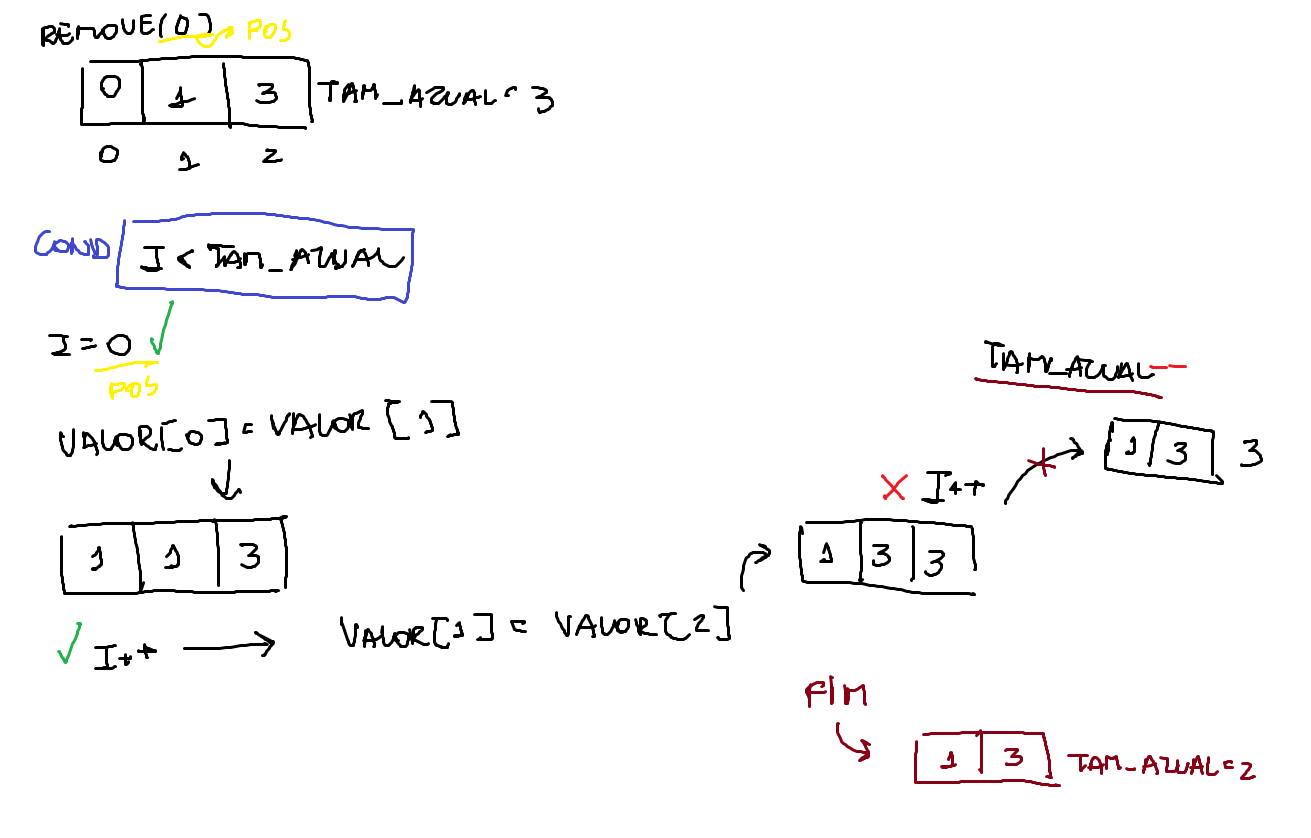 REMOVE(0) POS
0 1 3 TAM_ATUAL = 3
0 1 2
COND I < TAM_ATUAL
I = 0
POS
VALOR[0] = VALOR [1]
1 1 3
I++
VALOR[1] = VALOR[2]
1 3 3
I++
TAM_ATUAL--
1 3 3
FIM
1 3 TAM_ATUAL = 2